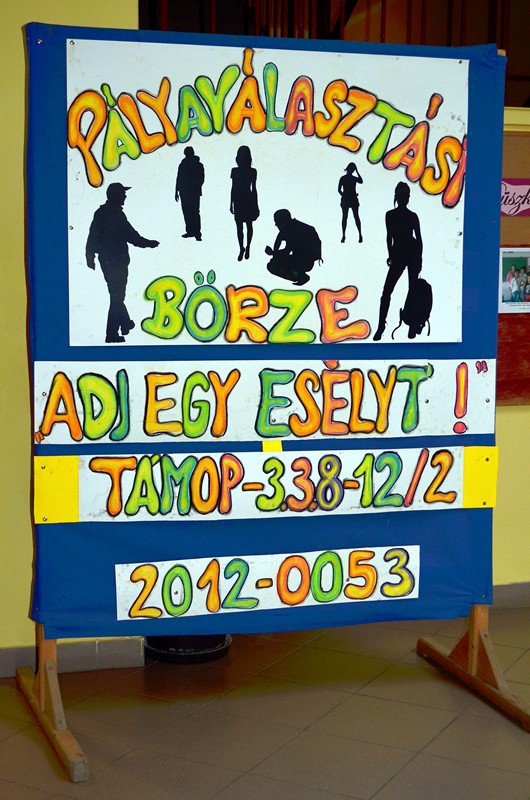 PÁLYAVÁLASZTÁSI
BÖRZE
„ADJ EGY ESÉLYT !”
TÁMOP-3.3.8-12/2
2012-0053